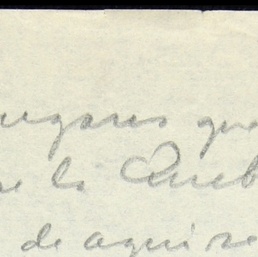 ugares que
se la Queb
de aqui se